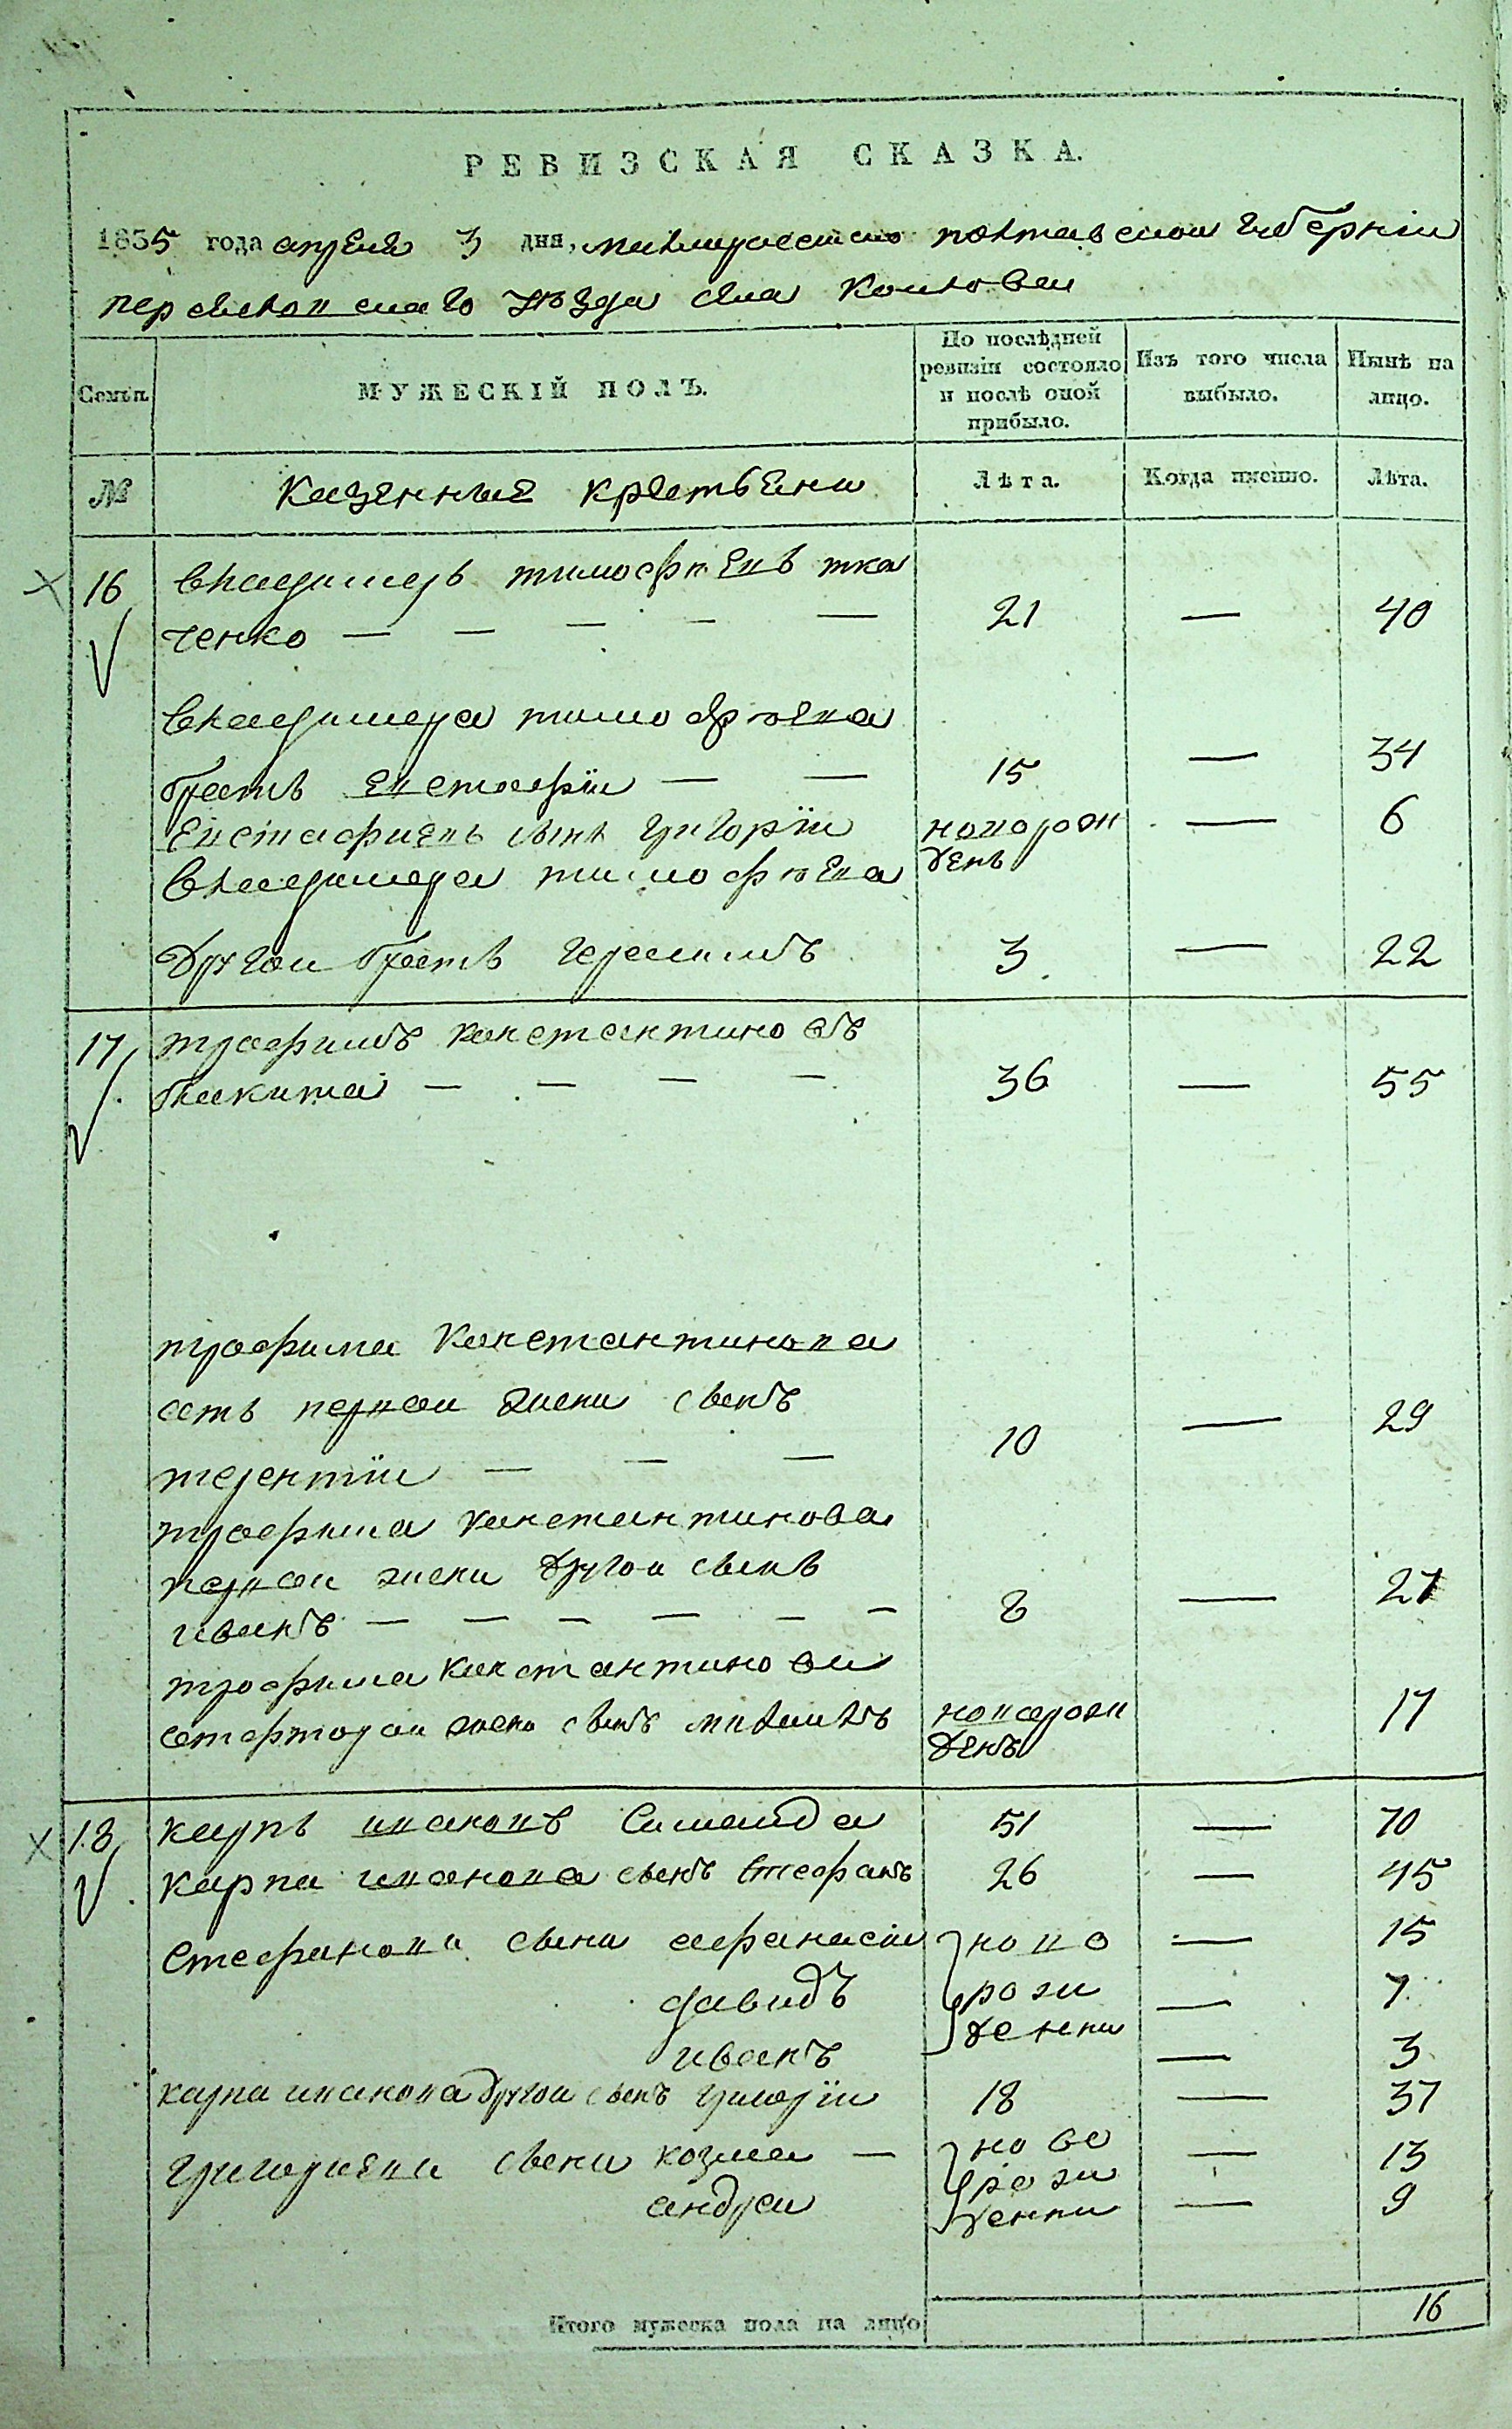 РЕВИЗСКАЯ СКАЗКА.
1835 года апреля 3 дня, полтавской губерніи
уѣзда села
Семьи. МУЖЕСКІЙ ПОЛЪ. По послѣдней ревизіи состояло и послѣ оной прибыло. Изъ того числа выбыло. Нынѣ на лицо.
№ казенные крестьяни Лѣта. Когда именно. Лѣта.
16 владимеръ тимофѣевъ тка
ченко — — — — — 21 — 40
владимера тимофѣева
братъ евстафіи — — 15 — 34
евстафиевъ сынъ григоріи новорож — 6
владимера тимофѣева денъ
другои братъ герасимъ 3 — 22
17 трофимъ константиновъ
бакита — — — — 36 — 55
трофима константинова
отъ первои жены сынъ
терентіи — — — 10 — 29
трофима константинова
первои жены другои сынъ
иванъ — — — — — — 8 — 27
трофима константинова
отвторои жены сынъ михаилъ новорож 17
денъ
18 карпъ ивановъ 51 — 70
карпа иванова сынъ стефанъ 26 — 45
стефанова сыны афанасіи ново — 15
давидъ рож — 7
иванъ денни — 3
карпа иванова другои сынъ григоріи 18 — 37
григориевы сыны козма — ново — 13
андреи рож — 9
денни
Итого мужеска пола на лицо 16